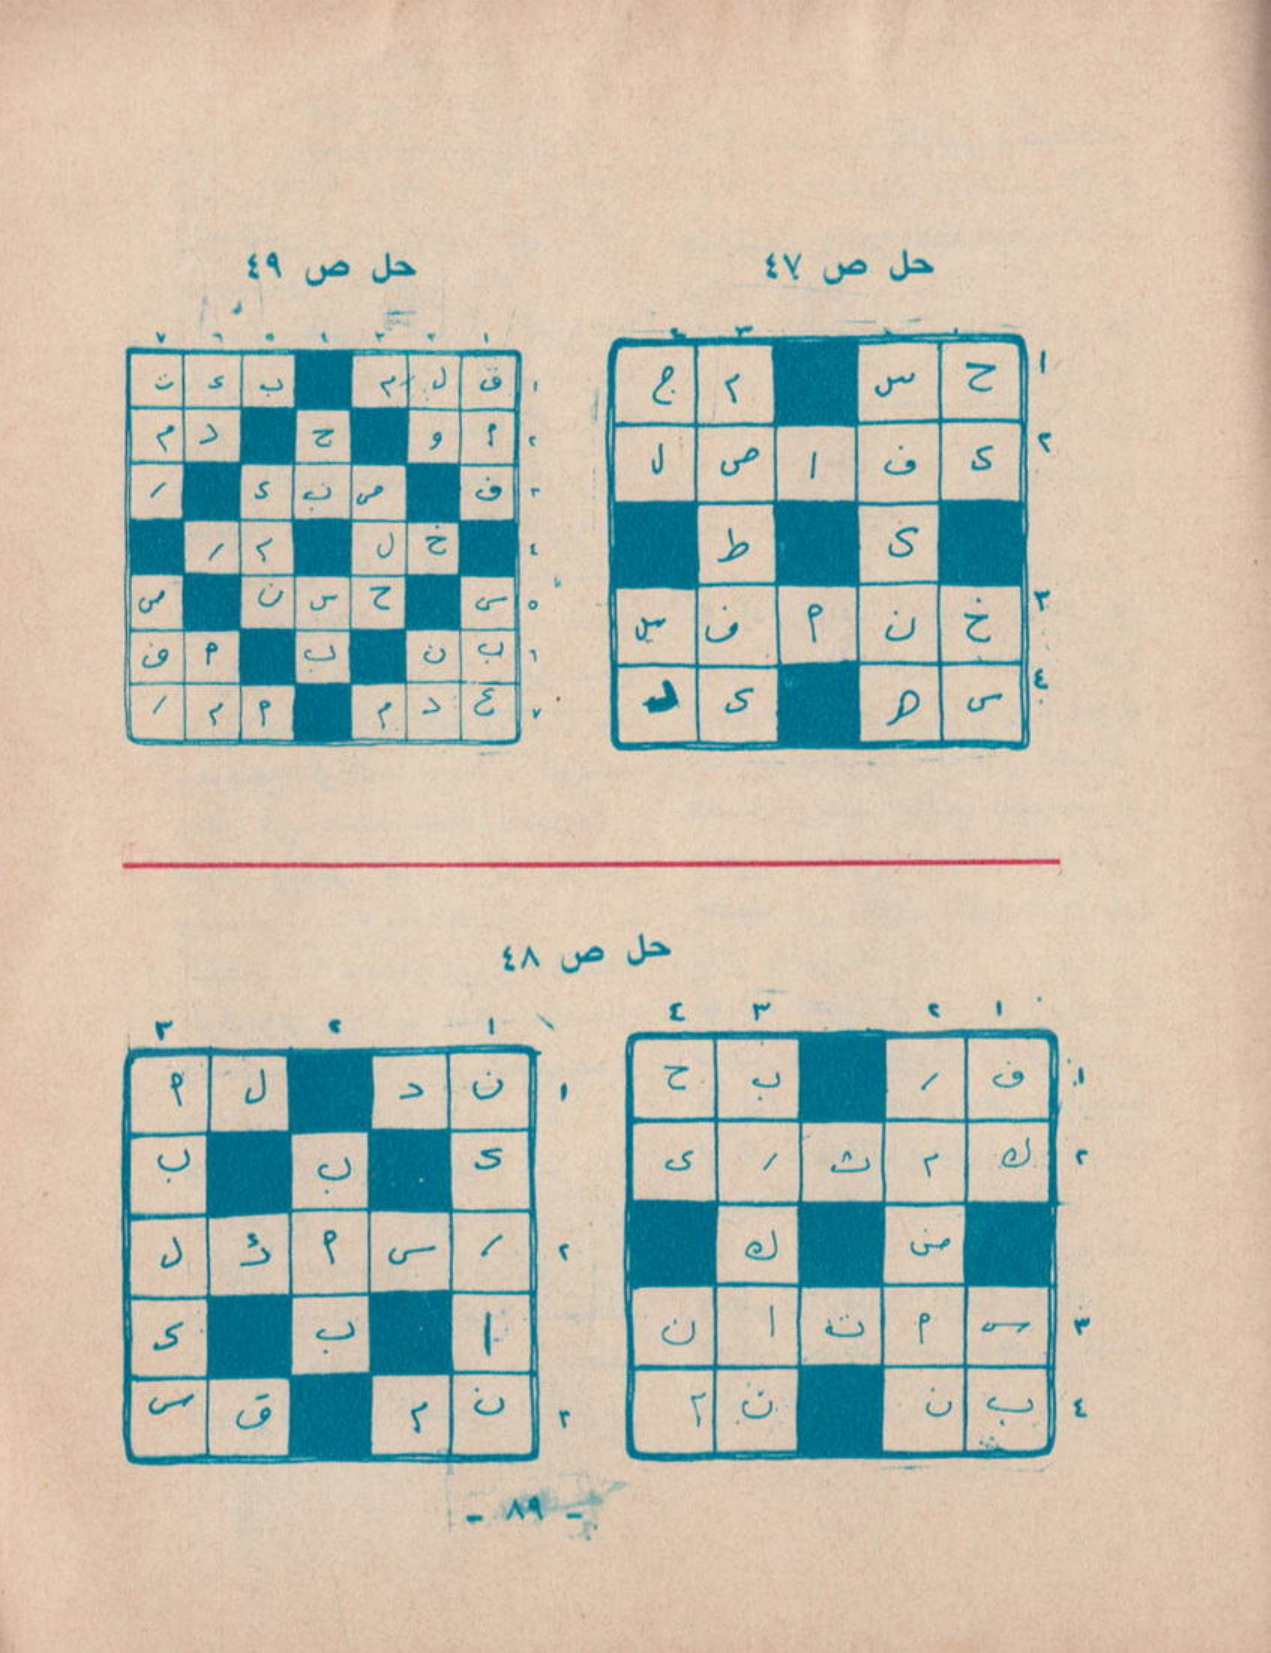 حل ص ٤٧
٣ ٤
١ ح س م ج
٢ ى ف ا ص ل
ى ط
٣ خ ن م ف س
٤ س ه ى
حل ص ٤٩
١ ٢ ٣ ٤ ٥ ٦ ٧
١ ق ل م ب ى ت
٢ أ و ح د م
٣ ف ص ب ى ر
٤ خ ل م ر
٥ س ح س ن ص
٦ ب ن ب م ف
٧ ع د م م م ر
حل ص ٤٨
١ ٢ ٣ ٤
١ ف ر ب ح
٢ ك م ث ر ى
ض ك
٣ س م ت ا ن
٤ ب ن ن م
١ ٢ ٣
١ ن د ل م
ى ب ب
٢ ر س م ك ل
ا ب ى
٣ ن م ق س
- ٨٩ -